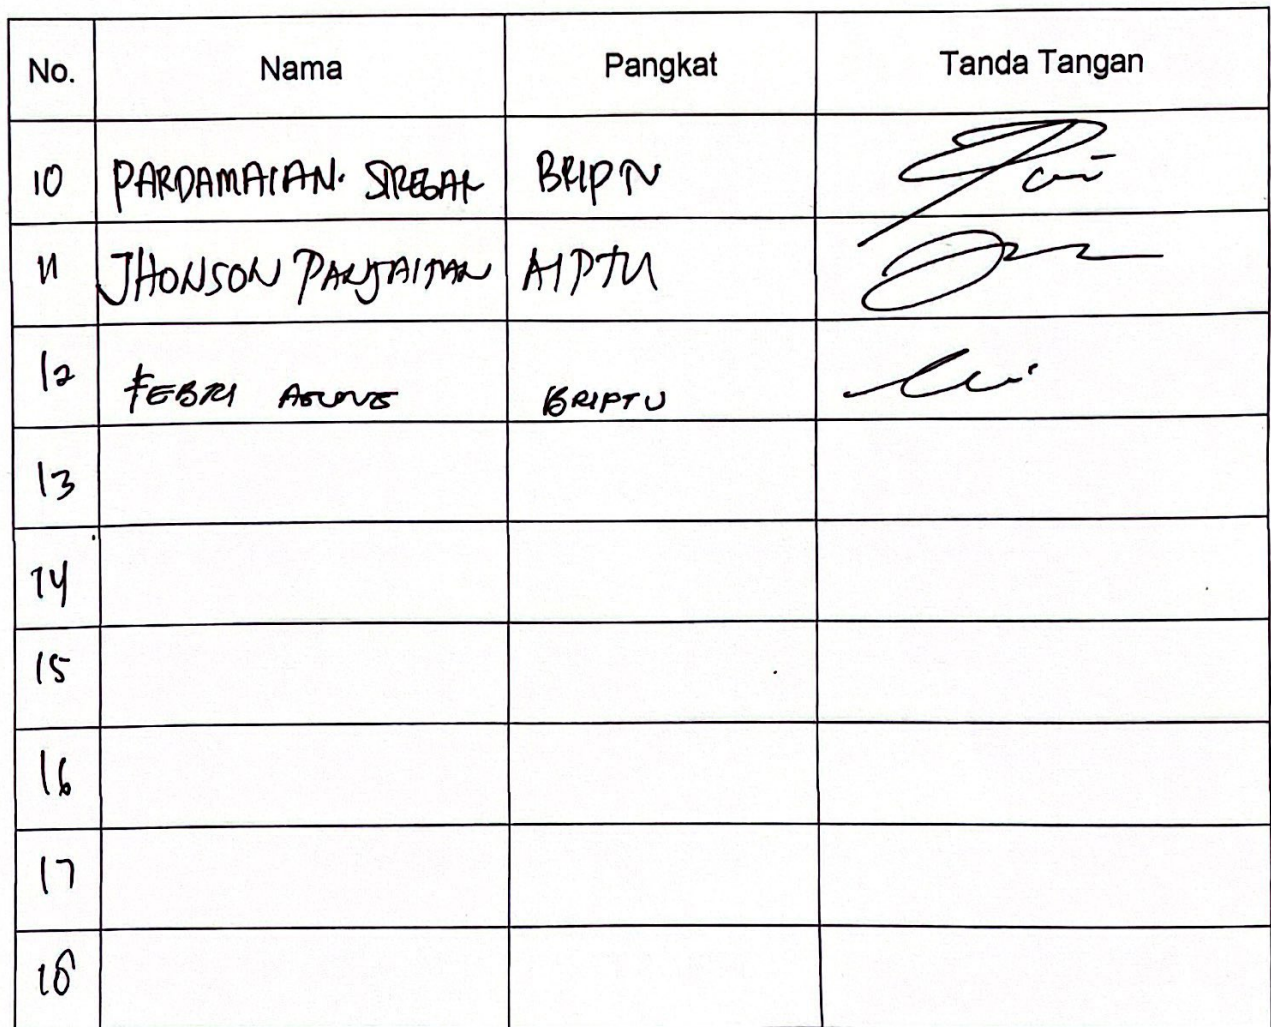 No. Nama Pangkat Tanda Tangan
10 PARDAMAIAN. SIREGAR BRIPTU
11 JHONSON PANJAITAN AIPTU
12 FEBRI AGUNG BRIPTU
13
14
15
16
17
18